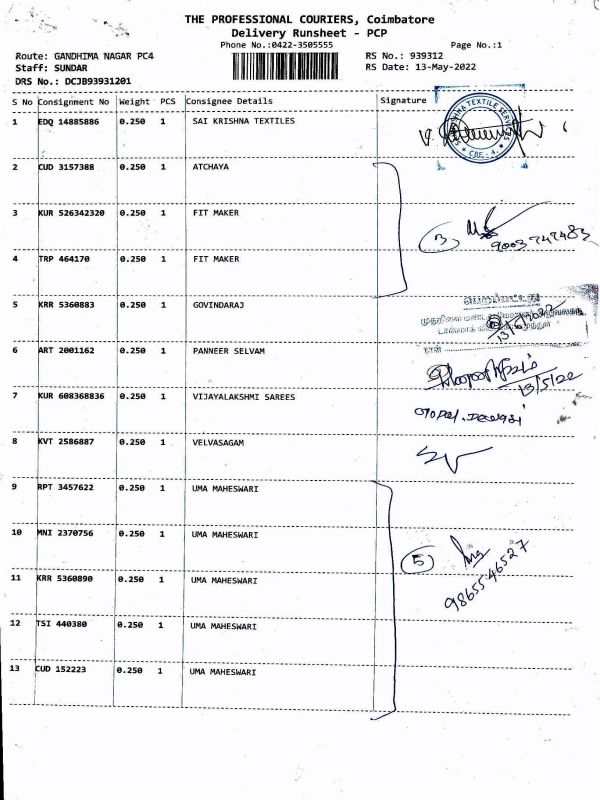 THE PROFESSIONAL COURIERS, Coimbatore
Delivery Runsheet - PCP
Phone No.:0422-3505555 Page No.:1
Route: GANDHIMA NAGAR PC4 RS No.: 939312
Staff: SUNDAR RS Date: 13-May-2022
DRS No.: DCJB93931201
S No Consignment No Weight PCS Consignee Details Signature
1 EDQ 14885886 0.250 1 SAI KRISHNA TEXTILES
CBE - 4.
2 CUD 3157388 0.250 1 ATCHAYA
3 KUR 526342320 0.250 1 FIT MAKER
3
4 TRP 464170 0.250 1 FIT MAKER
5 KRR 5360883 0.250 1 GOVINDARAJ
6 ART 2001162 0.250 1 PANNEER SELVAM
13/5/22
7 KUR 608368836 0.250 1 VIJAYALAKSHMI SAREES
8 KVT 2586887 0.250 1 VELVASAGAM
9 RPT 3457622 0.250 1 UMA MAHESWARI
10 MNI 2370756 0.250 1 UMA MAHESWARI
5
9865546527
11 KRR 5360890 0.250 1 UMA MAHESWARI
12 TSI 440380 0.250 1 UMA MAHESWARI
13 CUD 152223 0.250 1 UMA MAHESWARI